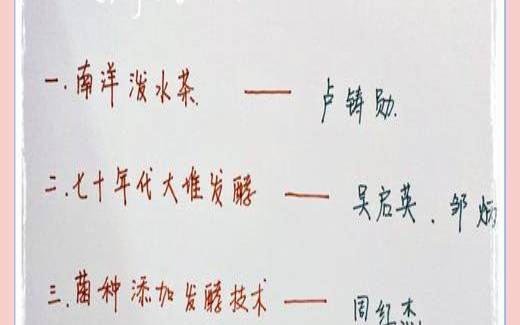 一.南洋泼水茶 —— 卢铸勋
二.七十年代大堆发酵 —— 吴启英、邹炳
三.菌种添加发酵技术 —— 周红杰